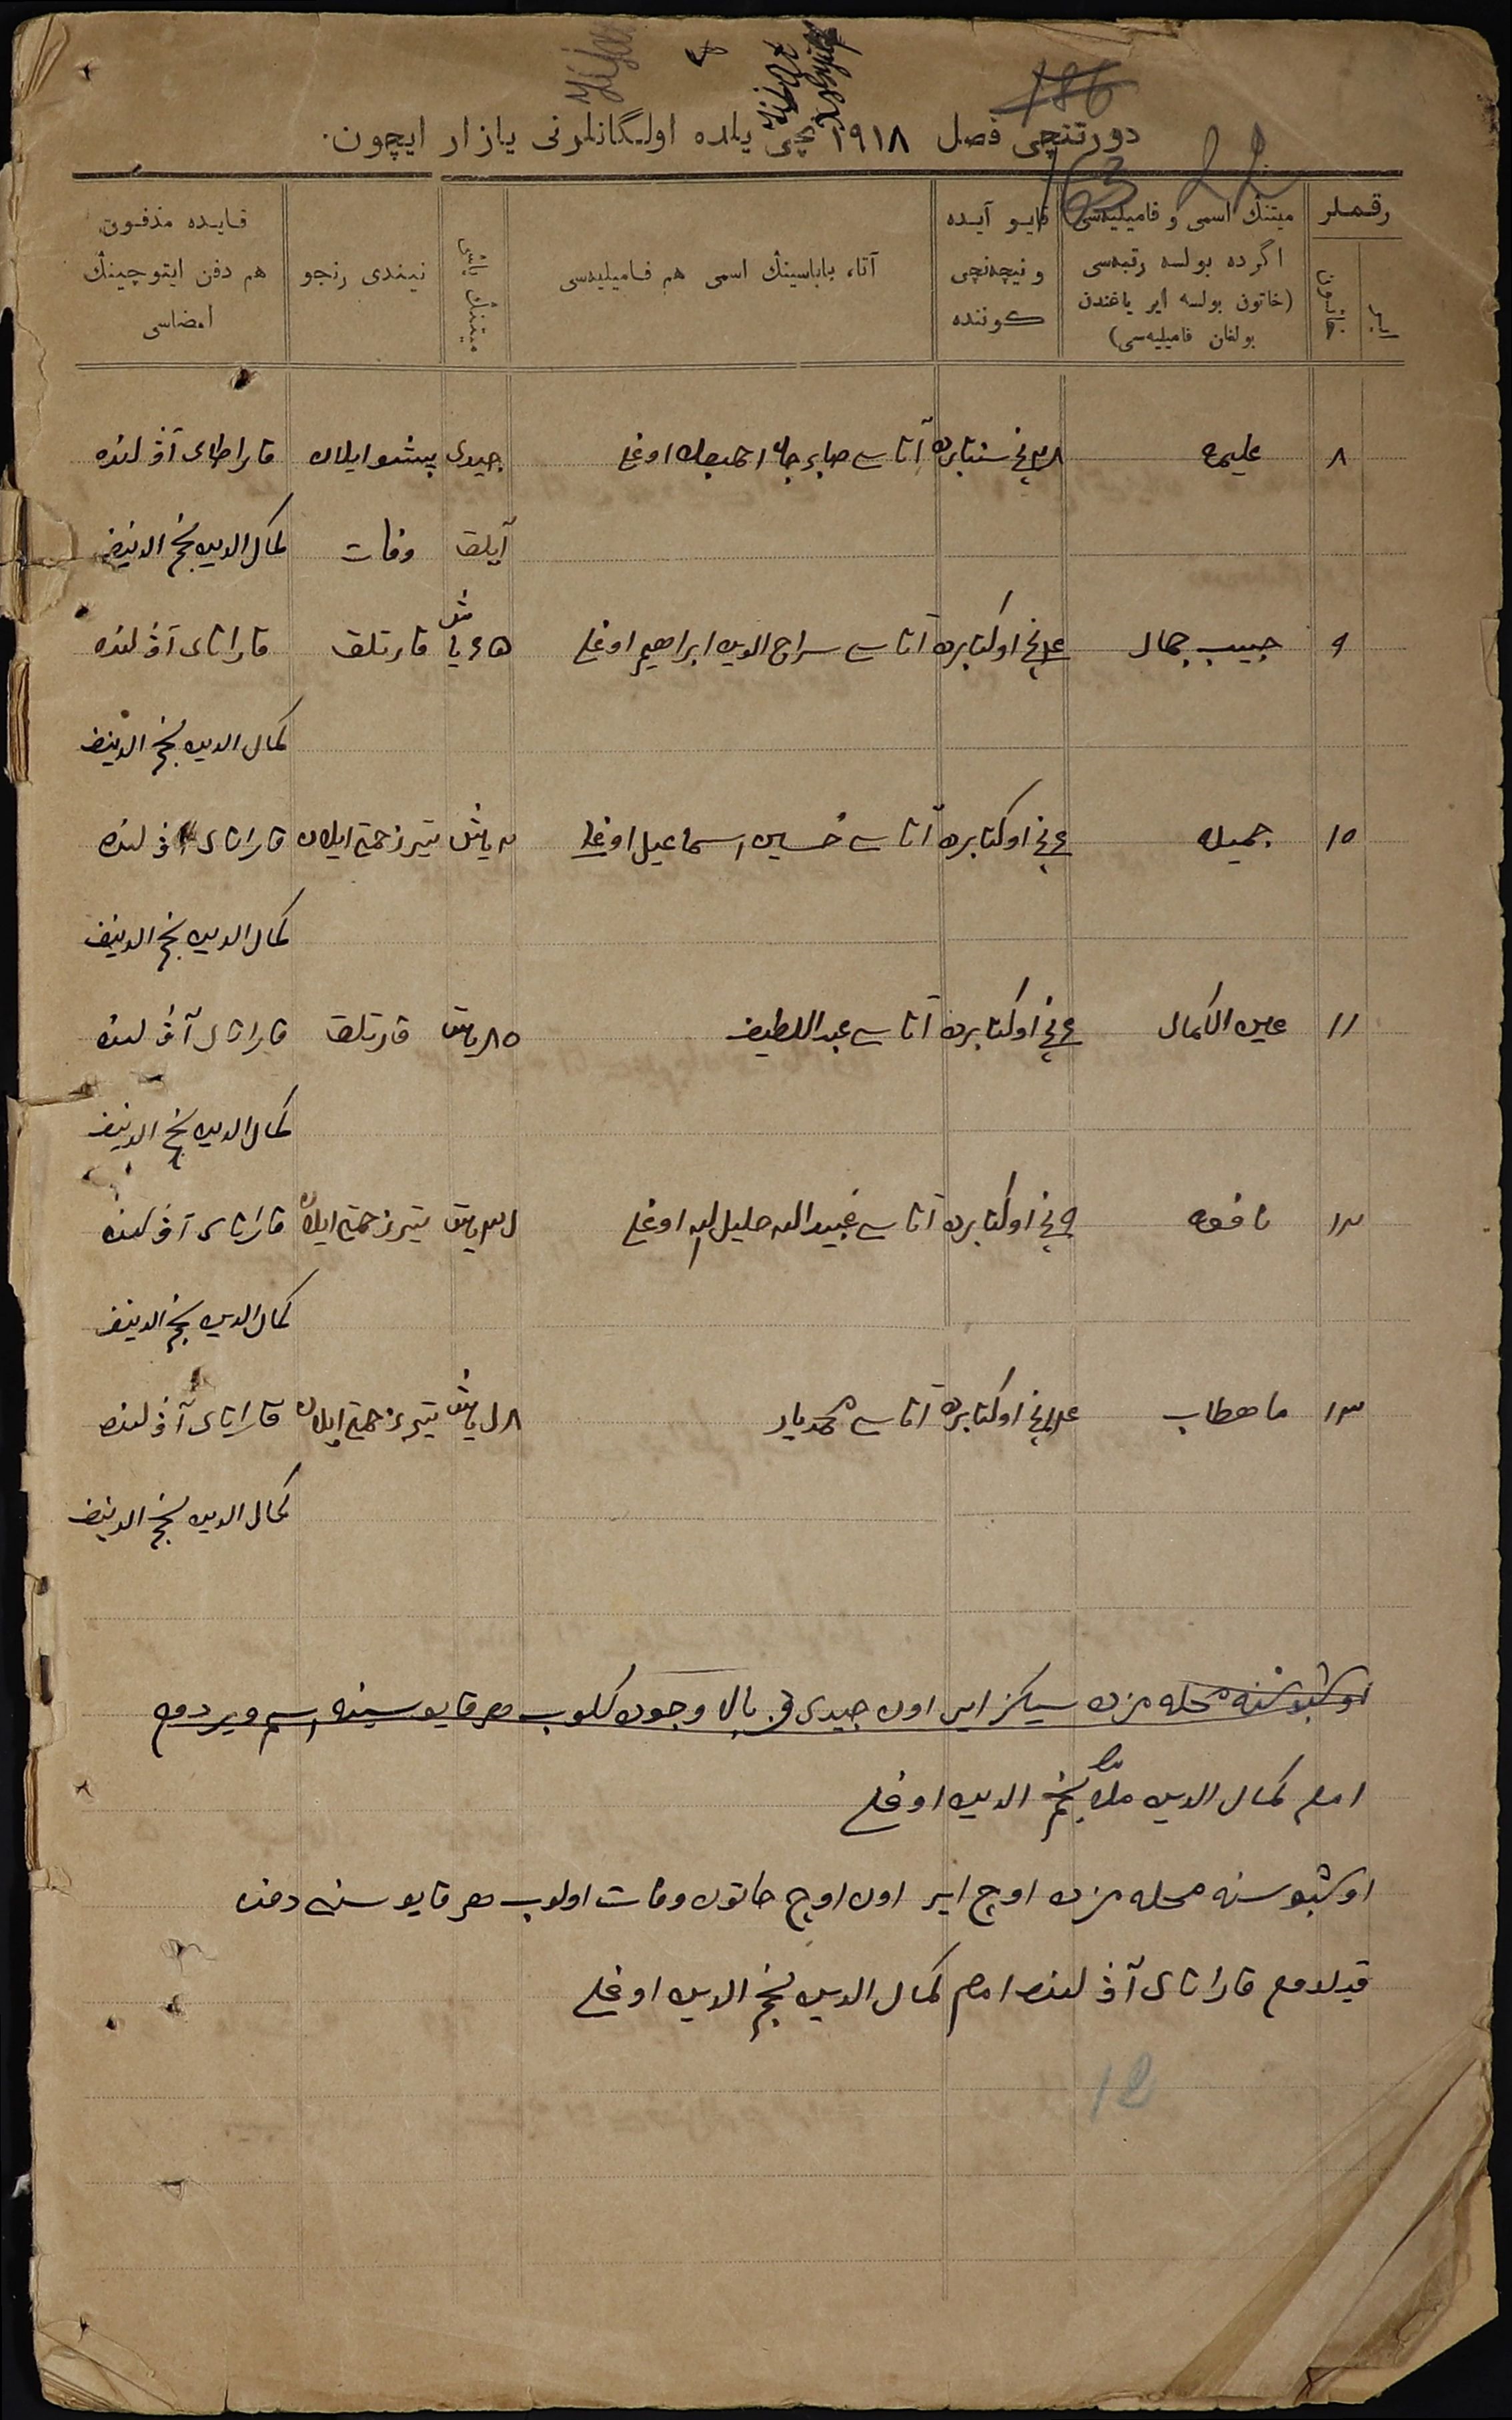 186
163 22
دورتنچی فصل ١٩١٨ نچی یلده اولگانلرنی یازار ایچون.
رقملر
ایرلر
خاتون
میتنڭ اسمی و فامیلیەسی اگرده بولسه رتبەسی (خاتون بولسه ایر یاغندن بولغان فامیلیەسی)
قایو آیده و نیچەنچی كوننده
آتا، باباسینڭ اسمی هم فامیلیەسی
میتنڭ یاشی
نیندی رنجو
قایده مدفون هم دفن ایتوچینڭ امضاسی
٨ علیمه سنتابرده آتاسی صابرجان احمدجان اوغلی جیدی پیشو ایلان قاراطای آؤلنده
آیلق وفات كمال الدین نجم الدینف
٩ حبیب جمال اوكتابرده آتاسی سراج الدین ابراهیم اوغلی قارتلق قاراتای آؤلنده
كمال الدین نجم الدینف
١٠ جمیله ٤ نچی اوكتابرده آتاسی حسین اسماعیل اوغلی یاش تیز زحمتی ایلان قاراتای آؤلنده
كمال الدین نجم الدینف
١١ عین الكمال ٤ نچی اوكتابرده آتاسی عبداللطیف ٨٥ یاش قارتلق قاراتای آؤلنده
كمال الدین نجم الدینف
١٢ نافعه ٩ نچی اوكتابرده آتاسی عبیدالله خلیل الله اوغلی یاش تیز زحمتی ایلان قاراتای آؤلنده
كمال الدین نجم الدینف
١٣ ماهطاب اوكتابرده آتاسی محمدیار یاش تیز زحمتی ایلان قاراتای آؤلنده
كمال الدین نجم الدینف
اوشبو سنه محله مزده سیكز ایر اون جیدی قز بالا وجوده كلوب هر قایوسینه اسم ویردم
امام كمال الدین ملا نجم الدین اوغلی
اوشبو سنه محله مزده اوچ ایر اون اوچ خاتون وفات اولوب هر قایوسنی دفن
قیلدم قاراتای آؤلنده امام كمال الدین نجم الدین اوغلی
12